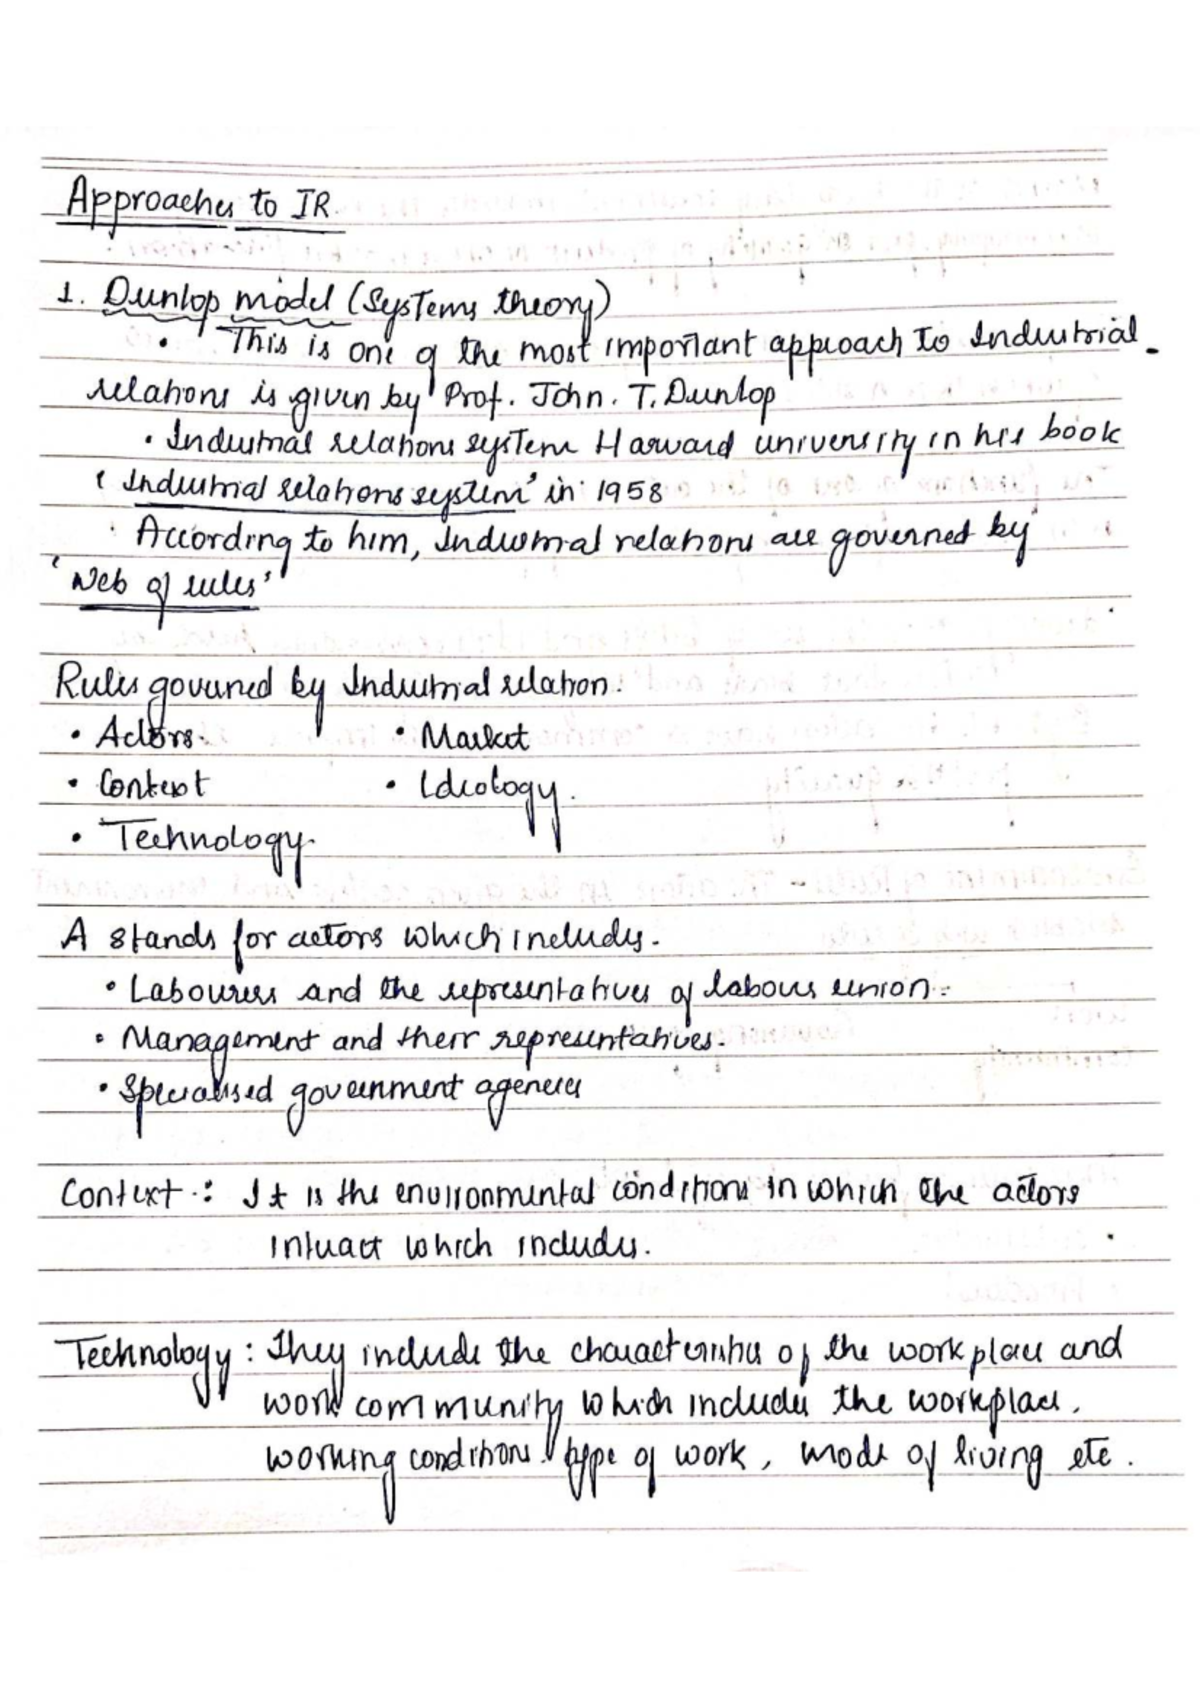 Approaches to IR.
1. Dunlop model (Systems theory)
• This is one of the most important approach to Industrial
relations is given by Prof. John. T. Dunlop
• Industrial relations system Harward university in his book
'Industrial relations system' in 1958
• According to him, Industrial relations are governed by
'Web of rules'
Rules governed by Industrial relation.
• Actors. • Market
• Context • Ideology.
• Technology.
A stands for actors which includes.
• Labourers and the representatives of labour union.
• Management and their representatives.
• Specialised government agencies
Context : It is the environmental conditions in which the actors
interact which includes.
Technology : They include the characteristics of the workplace and
work community which includes the workplace,
working conditions, type of work, mode of living etc.